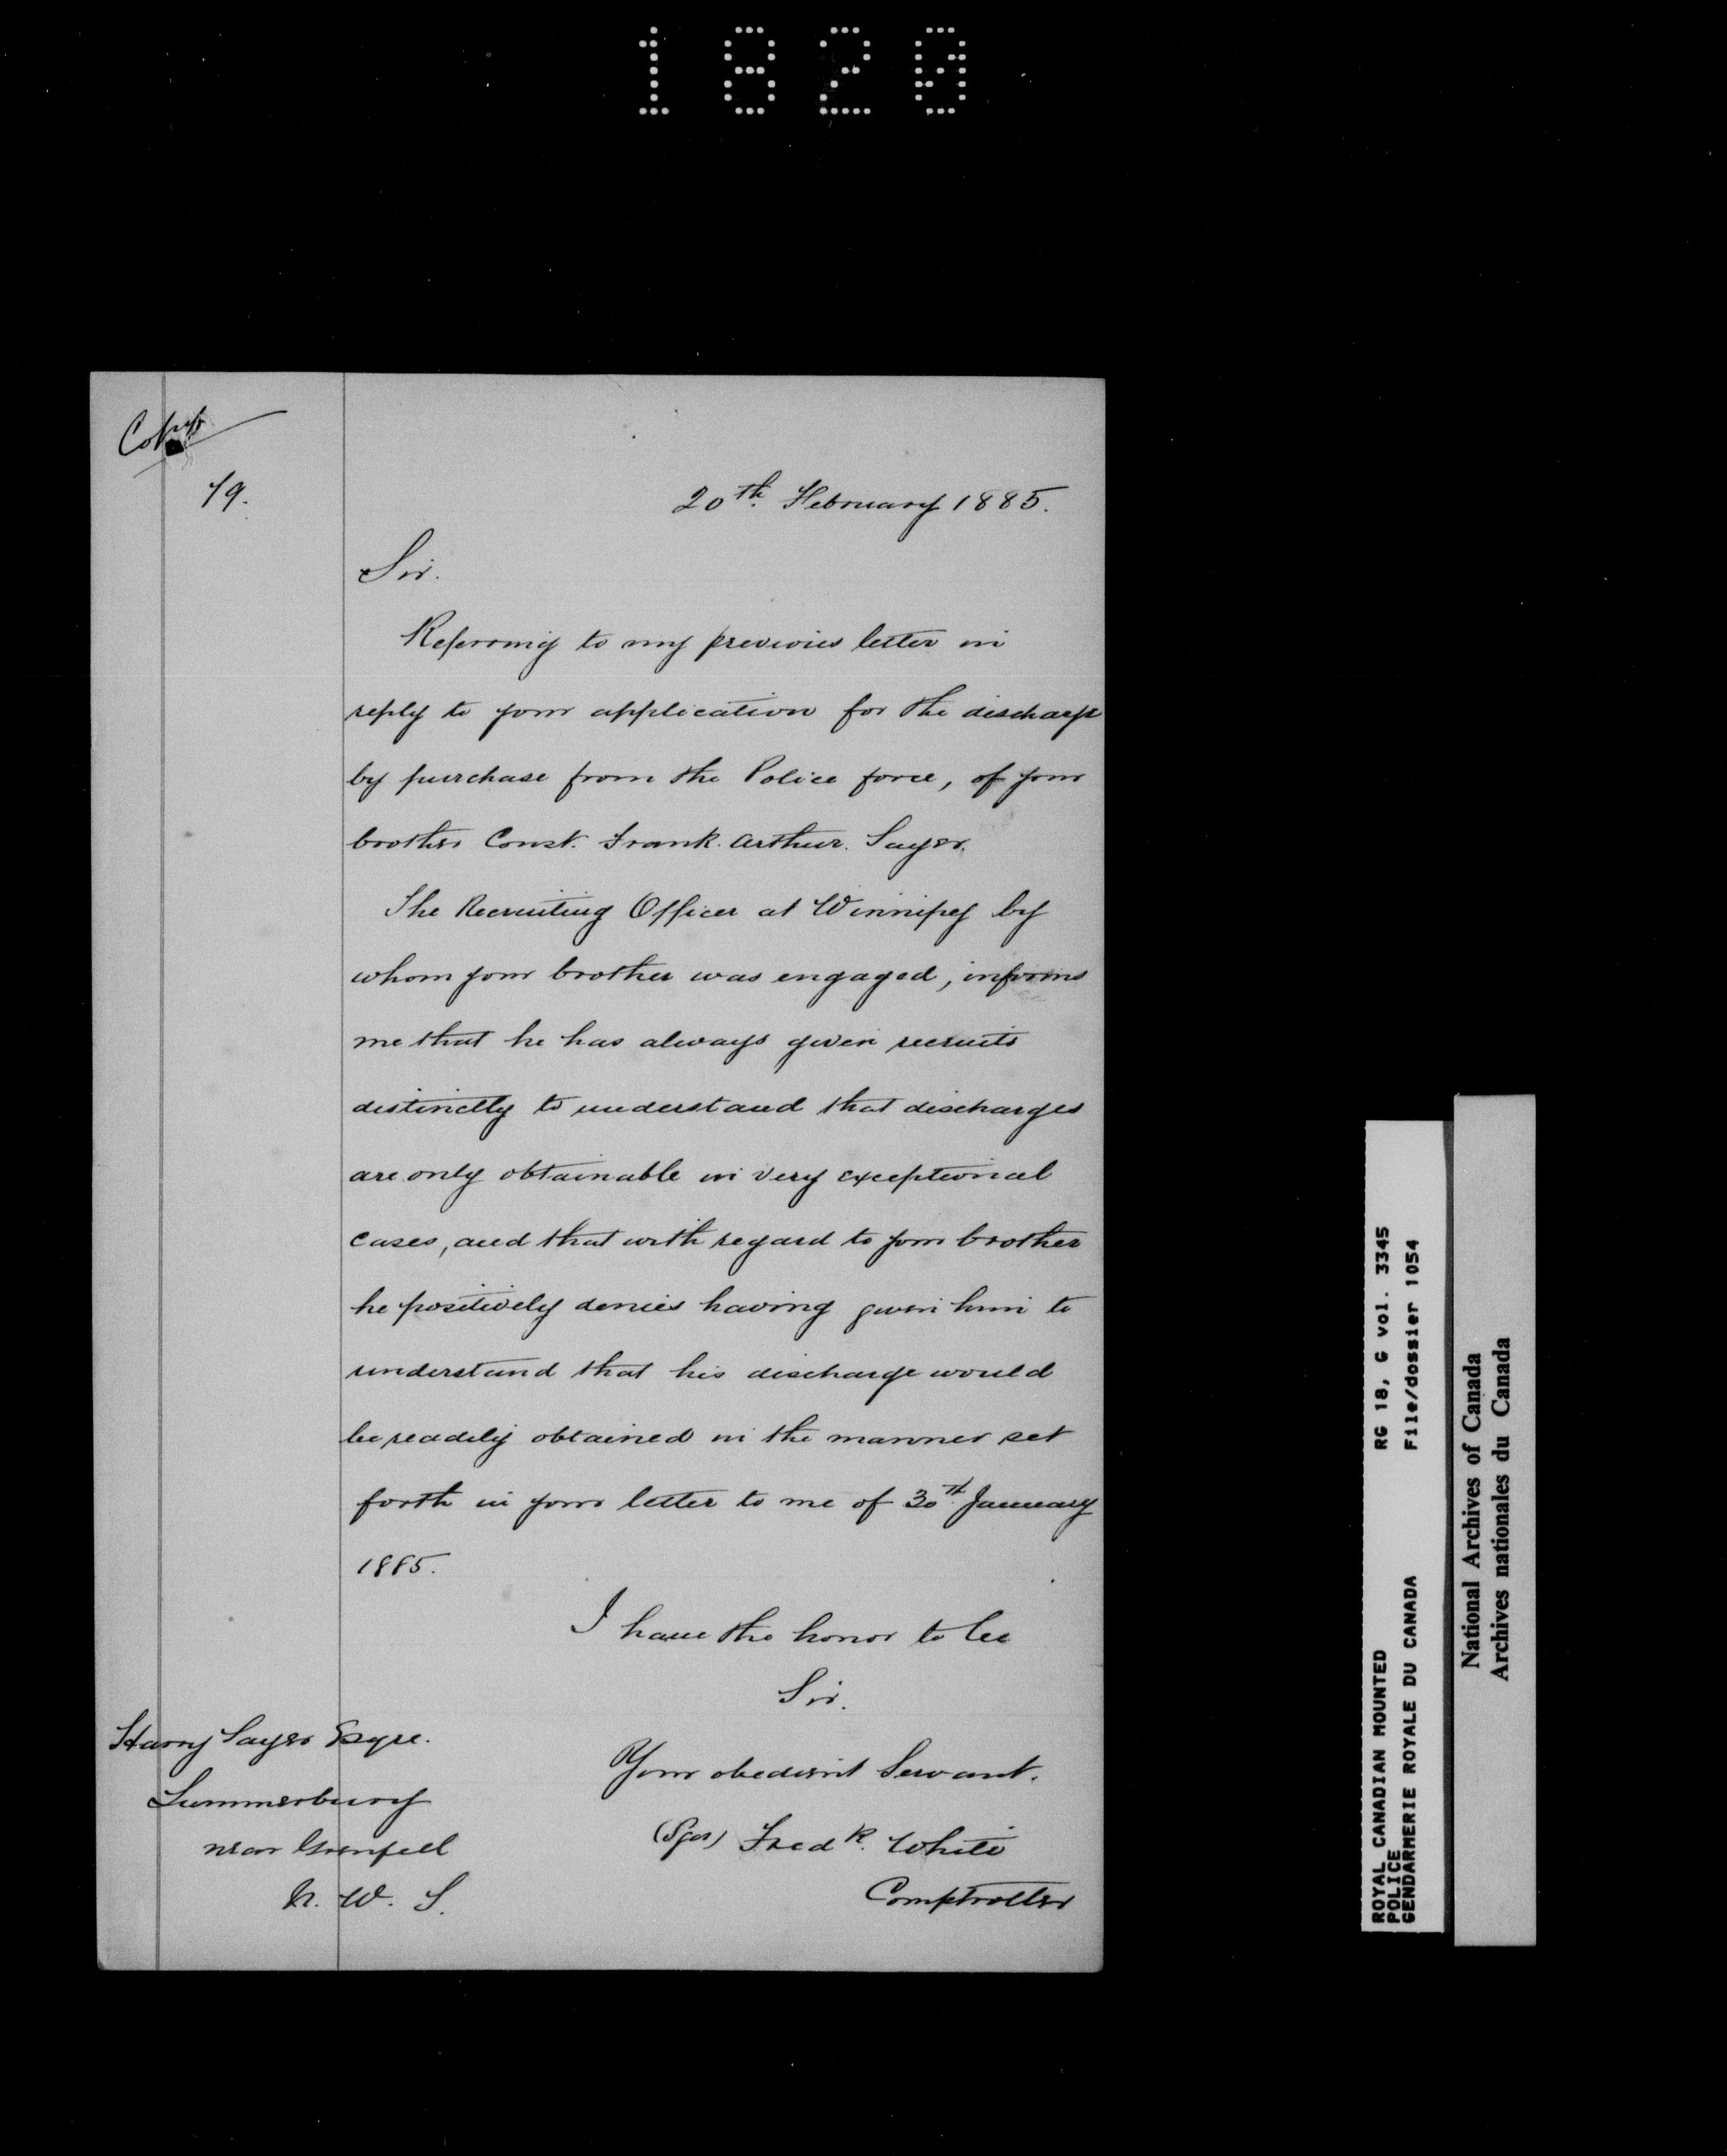 1820
Copy
79.
20th. February 1885.
Sir.
Referring to my previous letter in
reply to your application for the discharge
by purchase from the Police force, of your
brother Const. Frank. Arthur. Sayer.
The Recruiting Officer at Winnipeg by
whom your brother was engaged, informs
me that he has always given recruits
distinctly to understand that discharges
are only obtainable in very exceptional
cases, and that with regard to your brother
he positively denies having given him to
understand that his discharge would
be readily obtained in the manner set
forth in your letter to me of 30th January
1885.
I have the honor to be
Sir.
Your obedient Servant.
(Sgd) Fredk. White
Comptroller
Harry Sayer Esqre.
Summerbury
near Grenfell
N. W. T.
ROYAL CANADIAN MOUNTED RG 18, G vol. 3345
POLICE
GENDARMERIE ROYALE DU CANADA File/dossier 1054
National Archives of Canada
Archives nationales du Canada